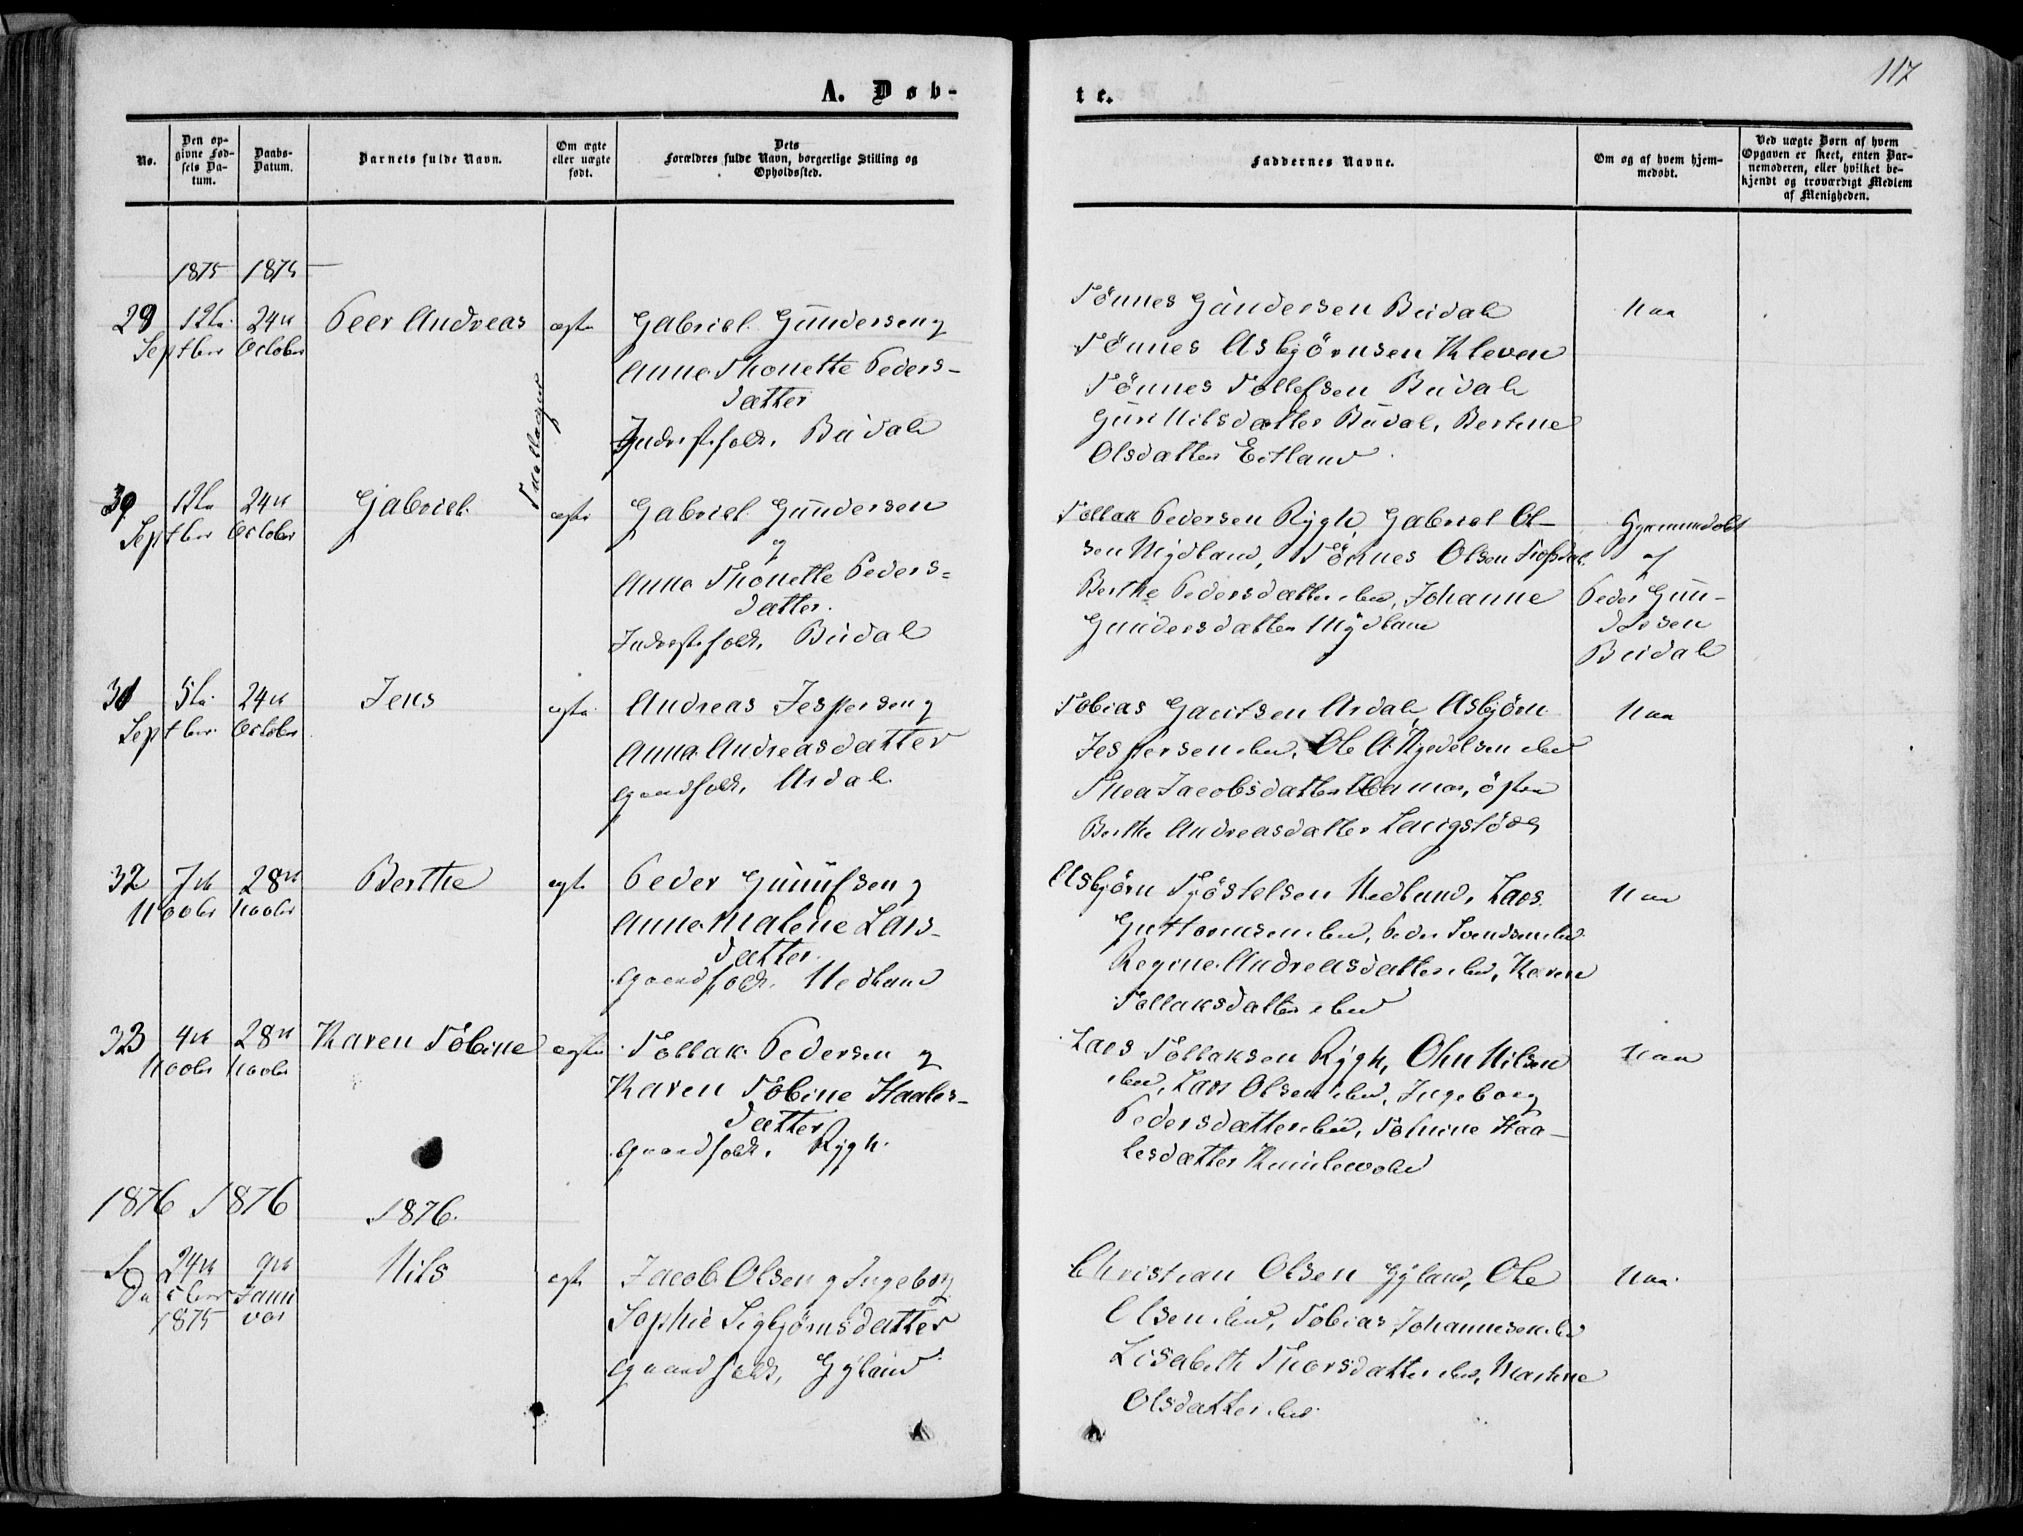 117
A. Døb-
te.
No.
Den op-
givne Fød-
sels Da-
tum.
Daabs-
Datum.
Barnets fulde Navn.
Om ægte
eller uægte
født.
Dets
Forældres fulde Navn, borgerlige Stilling og
Opholdssted.
Faddernes Navne.
Om og af hvem hjem-
medøbt.
Ved uægte Børn af hvem
Opgaven er skeet, enten Bar-
nemoderen, eller hvilket be-
kjendt og troværdigt Medlem
af Menigheden.
1875 1875
29 12te 24de Peer Andreas ægte Gabriel Gundersen og
Septbr October Anne Thonette Peders-
datter
Inderstefolk, Búdal
Tvillinger
Tönnes Gündersen Büdal Naa
Tönnes Asbjörnsen Kleven
Tönnes Tollefsen Büdal
Guri Nilsdatter Büdal, Bertine
Olsdatter Eitland
30 12te 24de Gabriel ægte Gabriel Gündersen
Septbr October og
Anne Thonette Peders=
datter.
Inderstefolk, Büdal
Tollak Pedersen Rygh, Gabriel Ol-
sen Nydland, Tönnes Olsen
Berthe Pedersdatter ibd, Johanne
Gundersdatter Nydland
Hjemmedøbt
af
Peder Gün-
dersen
Büdal
31 5te 24de Jens ægte Andreas Jespersen og
Septbr October Anna Andreasdatter
Gaardfolk, Ardal
Tobias Gautsen Ardal, Asbjörn Naa
Jespersen ibd, Ole A. Kjedelsen ibd
Thea Jacobsdatter
Berthe Andreasdatter Langstöe
32 7de 28de Berthe ægte Peder Gunúfsen og
Novbr Novbr Anne Malene Lars-
datter.
Gaardfolk, Nedland
Asbjörn Tjöstelsen Nedland, Lars Naa
Guttormsen ibd, Peder Svendsen ibd
Regine Andreasdatter ibd, Karen
Tollaksdatter ibd
33 4de 28de Karen Tobine ægte Tollak Pedersen og
Novbr Novbr Karen Tobine Haales-
datter
Gaardfolk, Rygh.
Lars Tollaksen Rygh, Ole Nilsen Naa
ibd, Lars Olsen ibd, Ingeborg
Pedersdatter ibd, Tomine Haa-
lesdatter
1876 1876 1876.
1 24de 9de Nils ægte Jacob Olsen og Ingeborg
Decbr Janu Sophie Sigbjörnsdatter
1875 var Gaardfolk, Gyland
Christian Olsen Gyland, Ole Naa
Olsen ibd, Tobias Johannesen ibd
Lisabeth Thorsdatter ibd, Martine
Olsdatter ibd